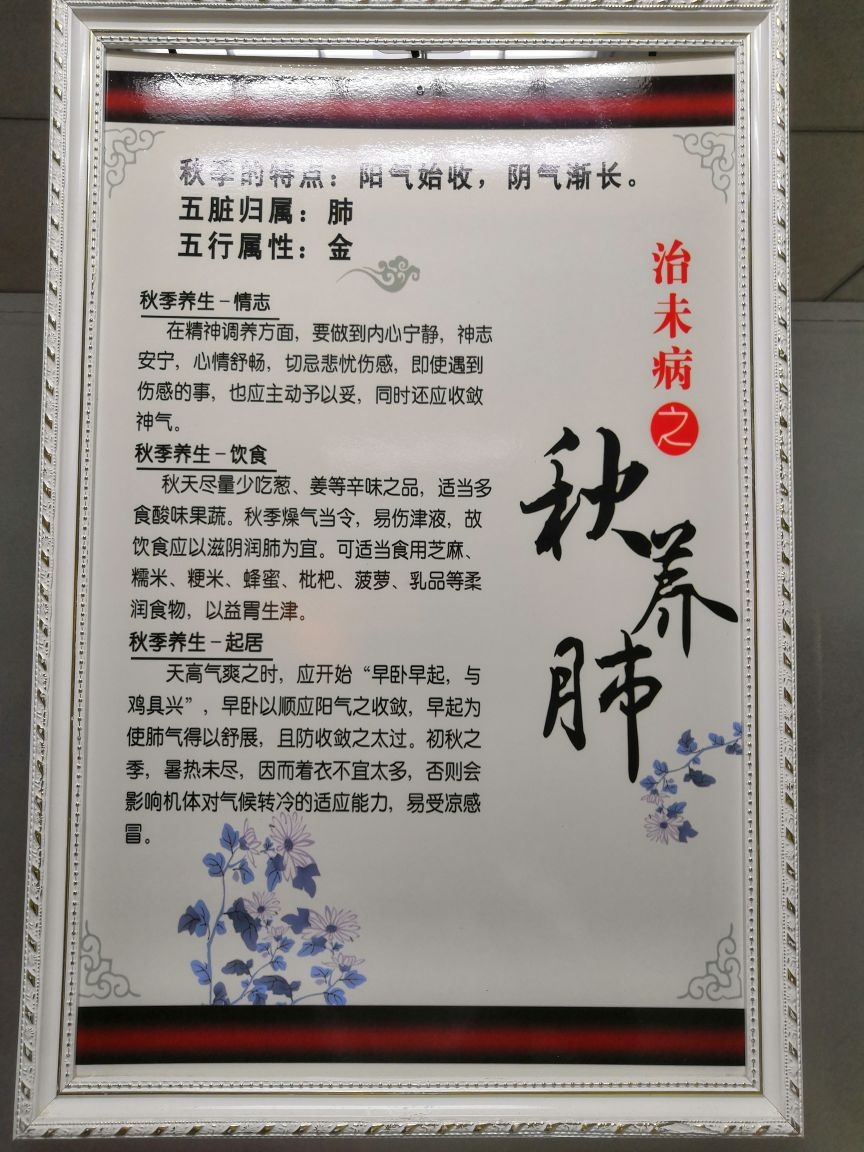 秋季的特点：阳气始收，阴气渐长。
五脏归属：肺
五行属性：金
治未病之
秋养肺
秋季养生－情志
在精神调养方面，要做到内心宁静，神志
安宁，心情舒畅，切忌悲忧伤感，即使遇到
伤感的事，也应主动予以妥，同时还应收敛
神气。
秋季养生－饮食
秋天尽量少吃葱、姜等辛味之品，适当多
食酸味果蔬。秋季燥气当令，易伤津液，故
饮食应以滋阴润肺为宜。可适当食用芝麻、
糯米、粳米、蜂蜜、枇杷、菠萝、乳品等柔
润食物，以益胃生津。
秋季养生－起居
天高气爽之时，应开始“早卧早起，与
鸡具兴”，早卧以顺应阳气之收敛，早起为
使肺气得以舒展，且防收敛之太过。初秋之
季，暑热未尽，因而着衣不宜太多，否则会
影响机体对气候转冷的适应能力，易受凉感
冒。